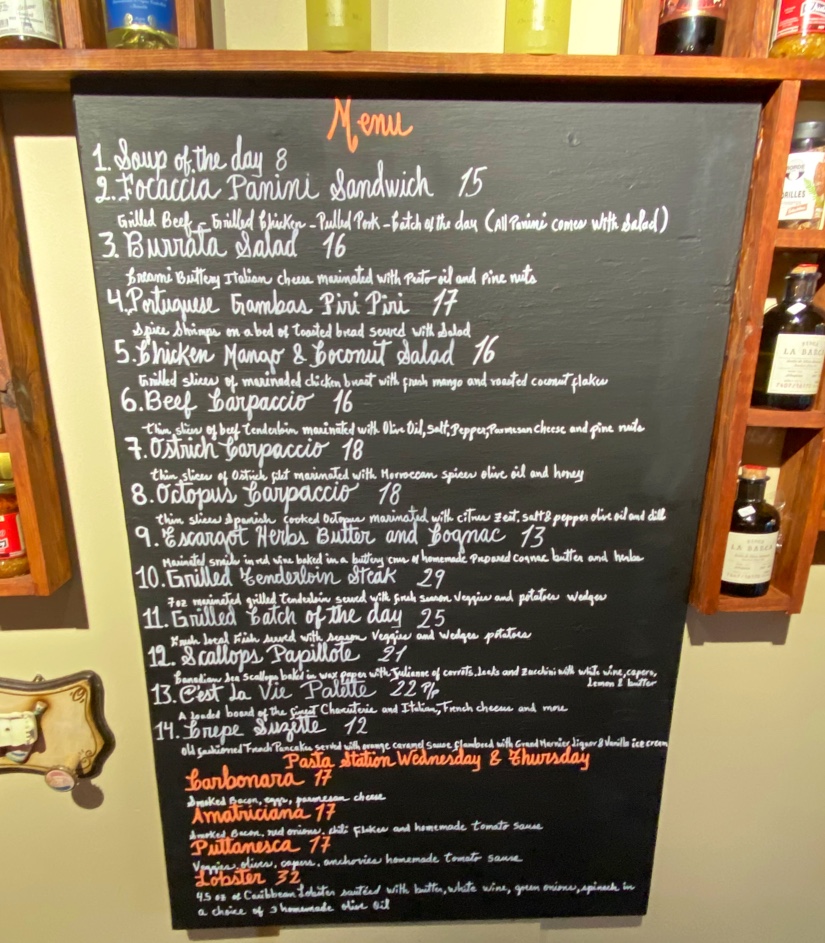 Menu
1. Soup of the day 8
2. Focaccia Panini Sandwich 15
Grilled Beef - Grilled Chicken - Pulled Pork - Catch of the day (All Panini comes with Salad)
3. Burrata Salad 16
Creami Buttery Italian cheese marinated with Pesto oil and Pine nuts
4. Portuguese Gambas Piri Piri 17
Spice Shrimps on a bed of toasted bread served with Salad
5. Chicken Mango & Coconut Salad 16
Grilled slices of marinaded chicken breast with fresh mango and roasted coconut flakes
6. Beef Carpaccio 16
thin slices of beef tenderloin marinated with Olive Oil, Salt, Pepper, Parmesan cheese and pine nuts
7. Ostrich Carpaccio 18
thin slices of Ostrich filet marinated with Morroccan spices olive oil and honey
8. Octopus Carpaccio 18
thin slices Spanish cooked Octopus marinated with citrus zest, salt & pepper olive oil and dill
9. Escargot Herbs Butter and Cognac 13
Marinated snails in red wine baked in a buttery of homemade Prepared Cognac butter and herbs
10. Grilled Tenderloin Steak 29
7oz marinated grilled tenderloin served with fresh season Veggies and potatoes wedges
11. Grilled Catch of the day 25
Fresh local Fish served with season Veggies and Wedges potatoes
12. Scallops Papillote 21
Canadian Sea Scallops baked in wax paper with Julianne of carrots, leeks and Zucchini with white wine, capers,
Lemon & butter
13. C'est La Vie Palette 22 Pp
A loaded board of the finest Charcuterie and Italian, French cheeses and more
14. Crepe Suzette 12
Old fashioned French Pancakes served with orange caramel sauce flambeed with Grand Marnier liquor & Vanilla ice cream
Pasta Station Wednesday & Thursday
Carbonara 17
Smoked Bacon, eggs, parmesan cheese
Amatriciana 17
Smoked Bacon, red onions, chili flakes and homemade tomato sauce
Puttanesca 17
Veggies, olives, capers, anchovies homemade tomato sauce
Lobster 32
4.5 oz of Caribbean Lobster sautéed with butter, white wine, green onions, spinach in
a choice of 3 homemade olive Oil
LA BASE
LA BASE